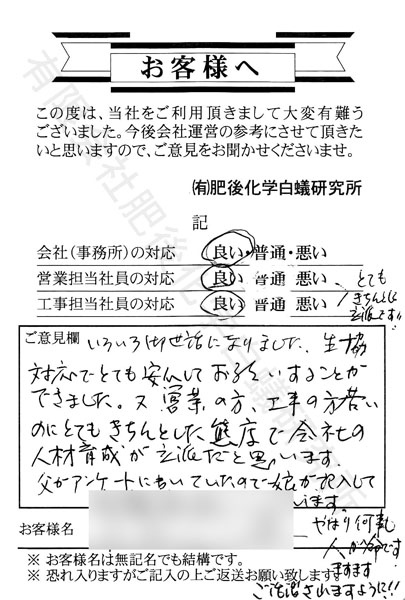 お客様へ
この度は、当社をご利用頂きまして大変有難う
ございました。今後会社運営の参考にさせて頂きた
いと思いますので、ご意見をお聞かせくださいませ。
㈲肥後化学白蟻研究所
記
会社(事務所)の対応 良い・普通・悪い
営業担当社員の対応 良い 普通 悪い
工事担当社員の対応 良い 普通 悪い
とても
きちんと
立派です!!
ご意見欄 いろいろお世話になりました。生協
対応でとても安心しておねがいすることが
できました。又営業の方、工事の方若い
のにとてもきちんとした態度で会社の
人材育成が立派だと思います。
父がアンケートに書いていたので娘が記入して
います。
お客様名
やはり何事も
人が命です
ますます
ご活躍されますように!!
※ お客様名は無記名でも結構です。
※ 恐れ入りますがご記入の上ご返送お願い致します。
有限会社肥後化学白蟻研究所